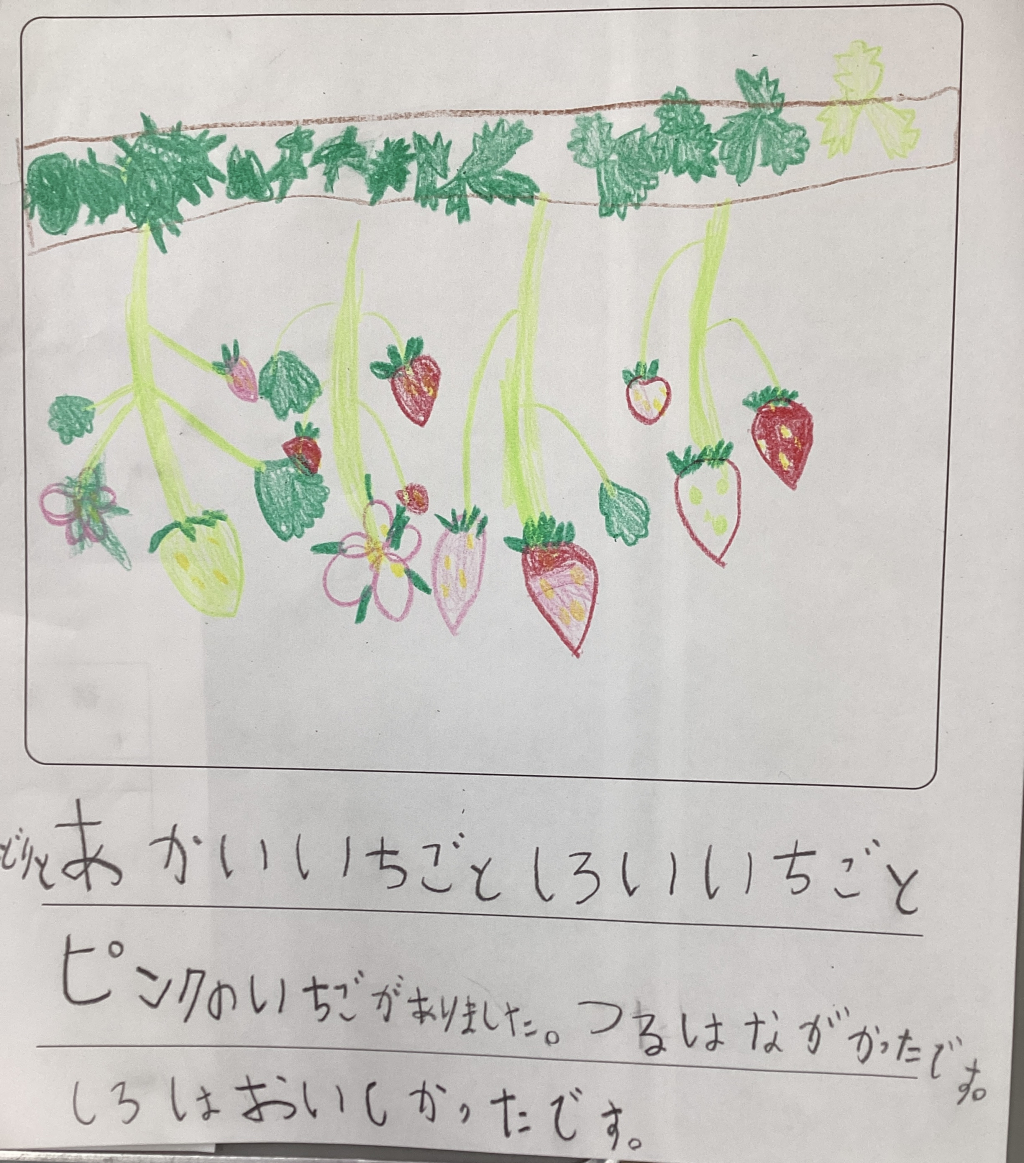 どりとあかいいちごとしろいいちごと
ピンクのいちごがありました。つるはながかったです。
しろはおいしかったです。